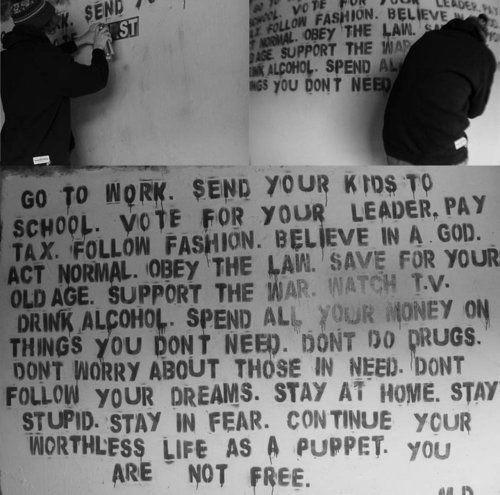 SEND
ST
SCHOOL. VOTE FOR YOUR LEADER. PAY
X. FOLLOW FASHION. BELIEVE
NORMAL. OBEY THE LAW. S
AGE. SUPPORT THE WAR
INK ALCOHOL. SPEND AL
NGS YOU DONT NEED
GO TO WORK. SEND YOUR KIDS TO
SCHOOL. VOTE FOR YOUR LEADER. PAY
TAX. FOLLOW FASHION. BELIEVE IN A GOD.
ACT NORMAL. OBEY THE LAW. SAVE FOR YOUR
OLD AGE. SUPPORT THE WAR. WATCH T.V.
DRINK ALCOHOL. SPEND ALL YOUR MONEY ON
THINGS YOU DONT NEED. DONT DO DRUGS.
DONT WORRY ABOUT THOSE IN NEED. DONT
FOLLOW YOUR DREAMS. STAY AT HOME. STAY
STUPID. STAY IN FEAR. CONTINUE YOUR
WORTHLESS LIFE AS A PUPPET. YOU
ARE NOT FREE.